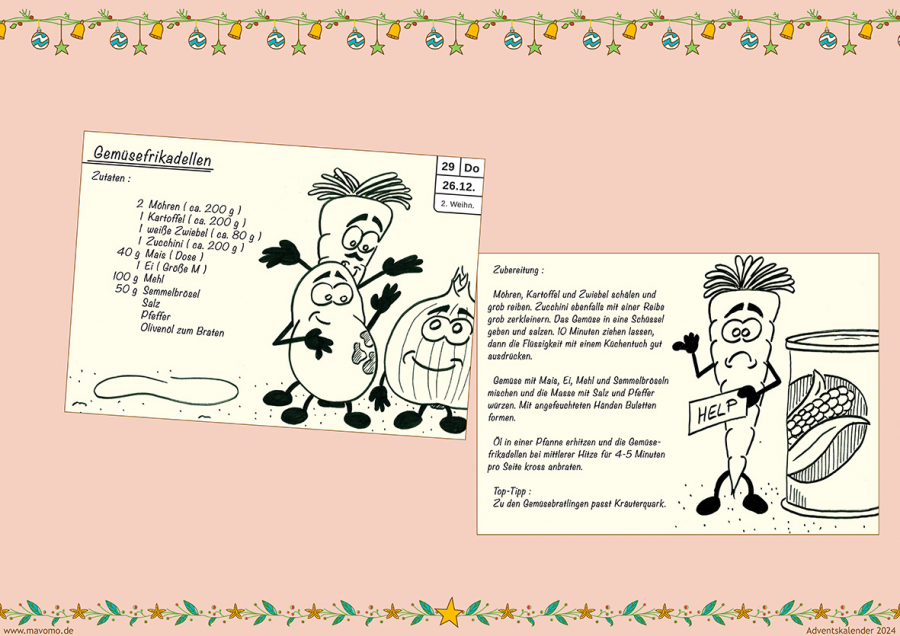 Gemüsefrikadellen
29 Do
26.12.
2. Weihn.
Zutaten :
2 Möhren ( ca. 200 g )
1 Kartoffel ( ca. 200 g )
1 weiße Zwiebel ( ca. 80 g )
1 Zucchini ( ca. 200 g )
40 g Mais ( Dose )
1 Ei ( Größe M )
100 g Mehl
50 g Semmelbrösel
Salz
Pfeffer
Olivenöl zum Braten
Zubereitung :
Möhren, Kartoffel und Zwiebel schälen und
grob reiben. Zucchini ebenfalls mit einer Reibe
grob zerkleinern. Das Gemüse in eine Schüssel
geben und salzen. 10 Minuten ziehen lassen,
dann die Flüssigkeit mit einem Küchentuch gut
ausdrücken.
Gemüse mit Mais, Ei, Mehl und Semmelbröseln
mischen und die Masse mit Salz und Pfeffer
würzen. Mit angefeuchteten Händen Buletten
formen.
Öl in einer Pfanne erhitzen und die Gemüse-
frikadellen bei mittlerer Hitze für 4-5 Minuten
pro Seite kross anbraten.
Top-Tipp :
Zu den Gemüsebratlingen passt Kräuterquark.
HELP
www.mavomo.de
Adventskalender 2024